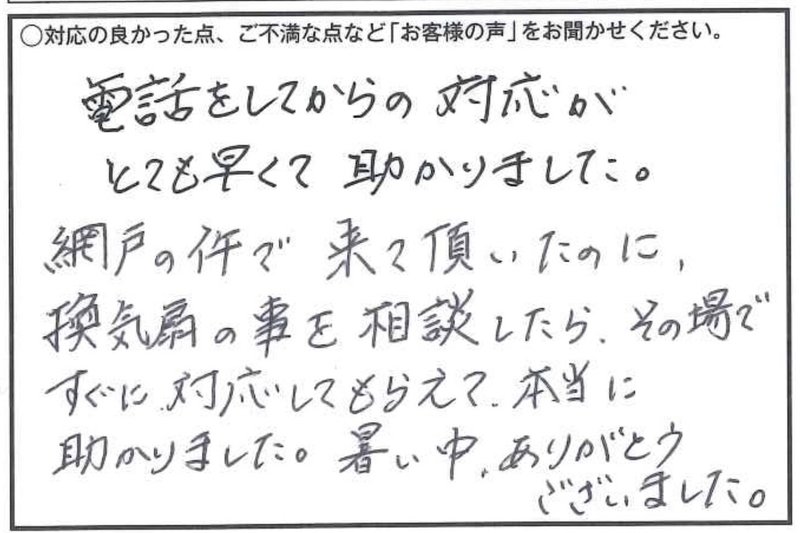 ○対応の良かった点、ご不満な点など「お客様の声」をお聞かせください。
電話をしてからの 対応が
とても早くて 助かりました。
網戸の件で 来て頂いたのに、
換気扇の事を相談したら、その場で
すぐに対応してもらえて、本当に
助かりました。暑い中、ありがとう
ございました。